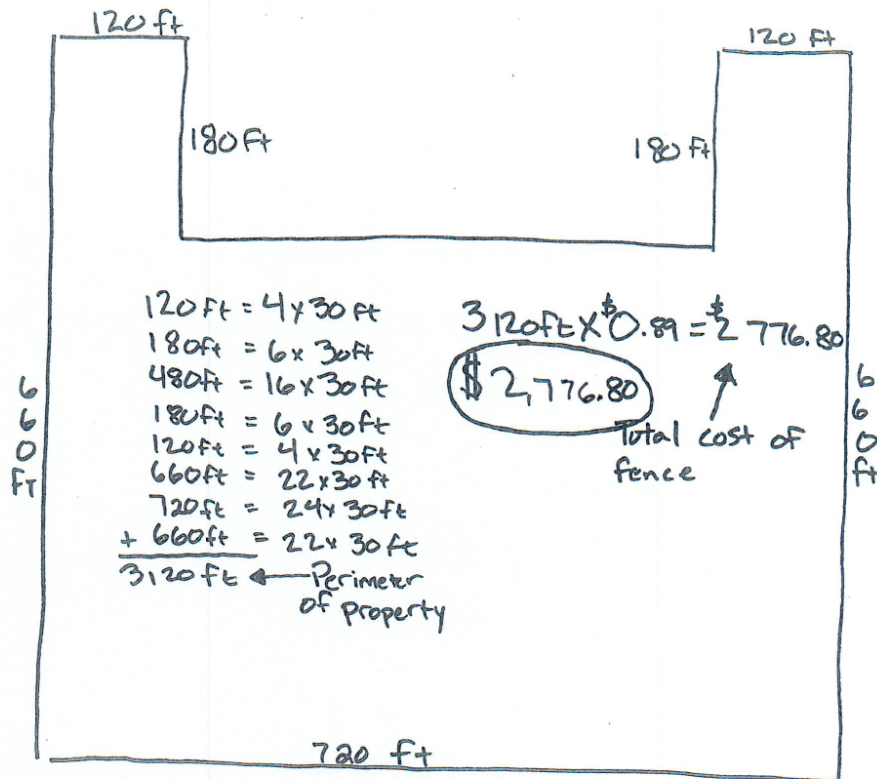 120 ft
120 ft
180 ft
180 ft
120 ft = 4 x 30 ft
180ft = 6 x 30ft
480ft = 16 x 30ft
180ft = 6 x 30ft
120ft = 4 x 30ft
660ft = 22 x 30ft
720ft = 24 x 30ft
+ 660ft = 22 x 30 ft
3,120 ft ← Perimeter
of property
3120ft X $0.89 = $2776.80
$2,776.80
Total cost of
fence
660 FT
660 ft
720 ft